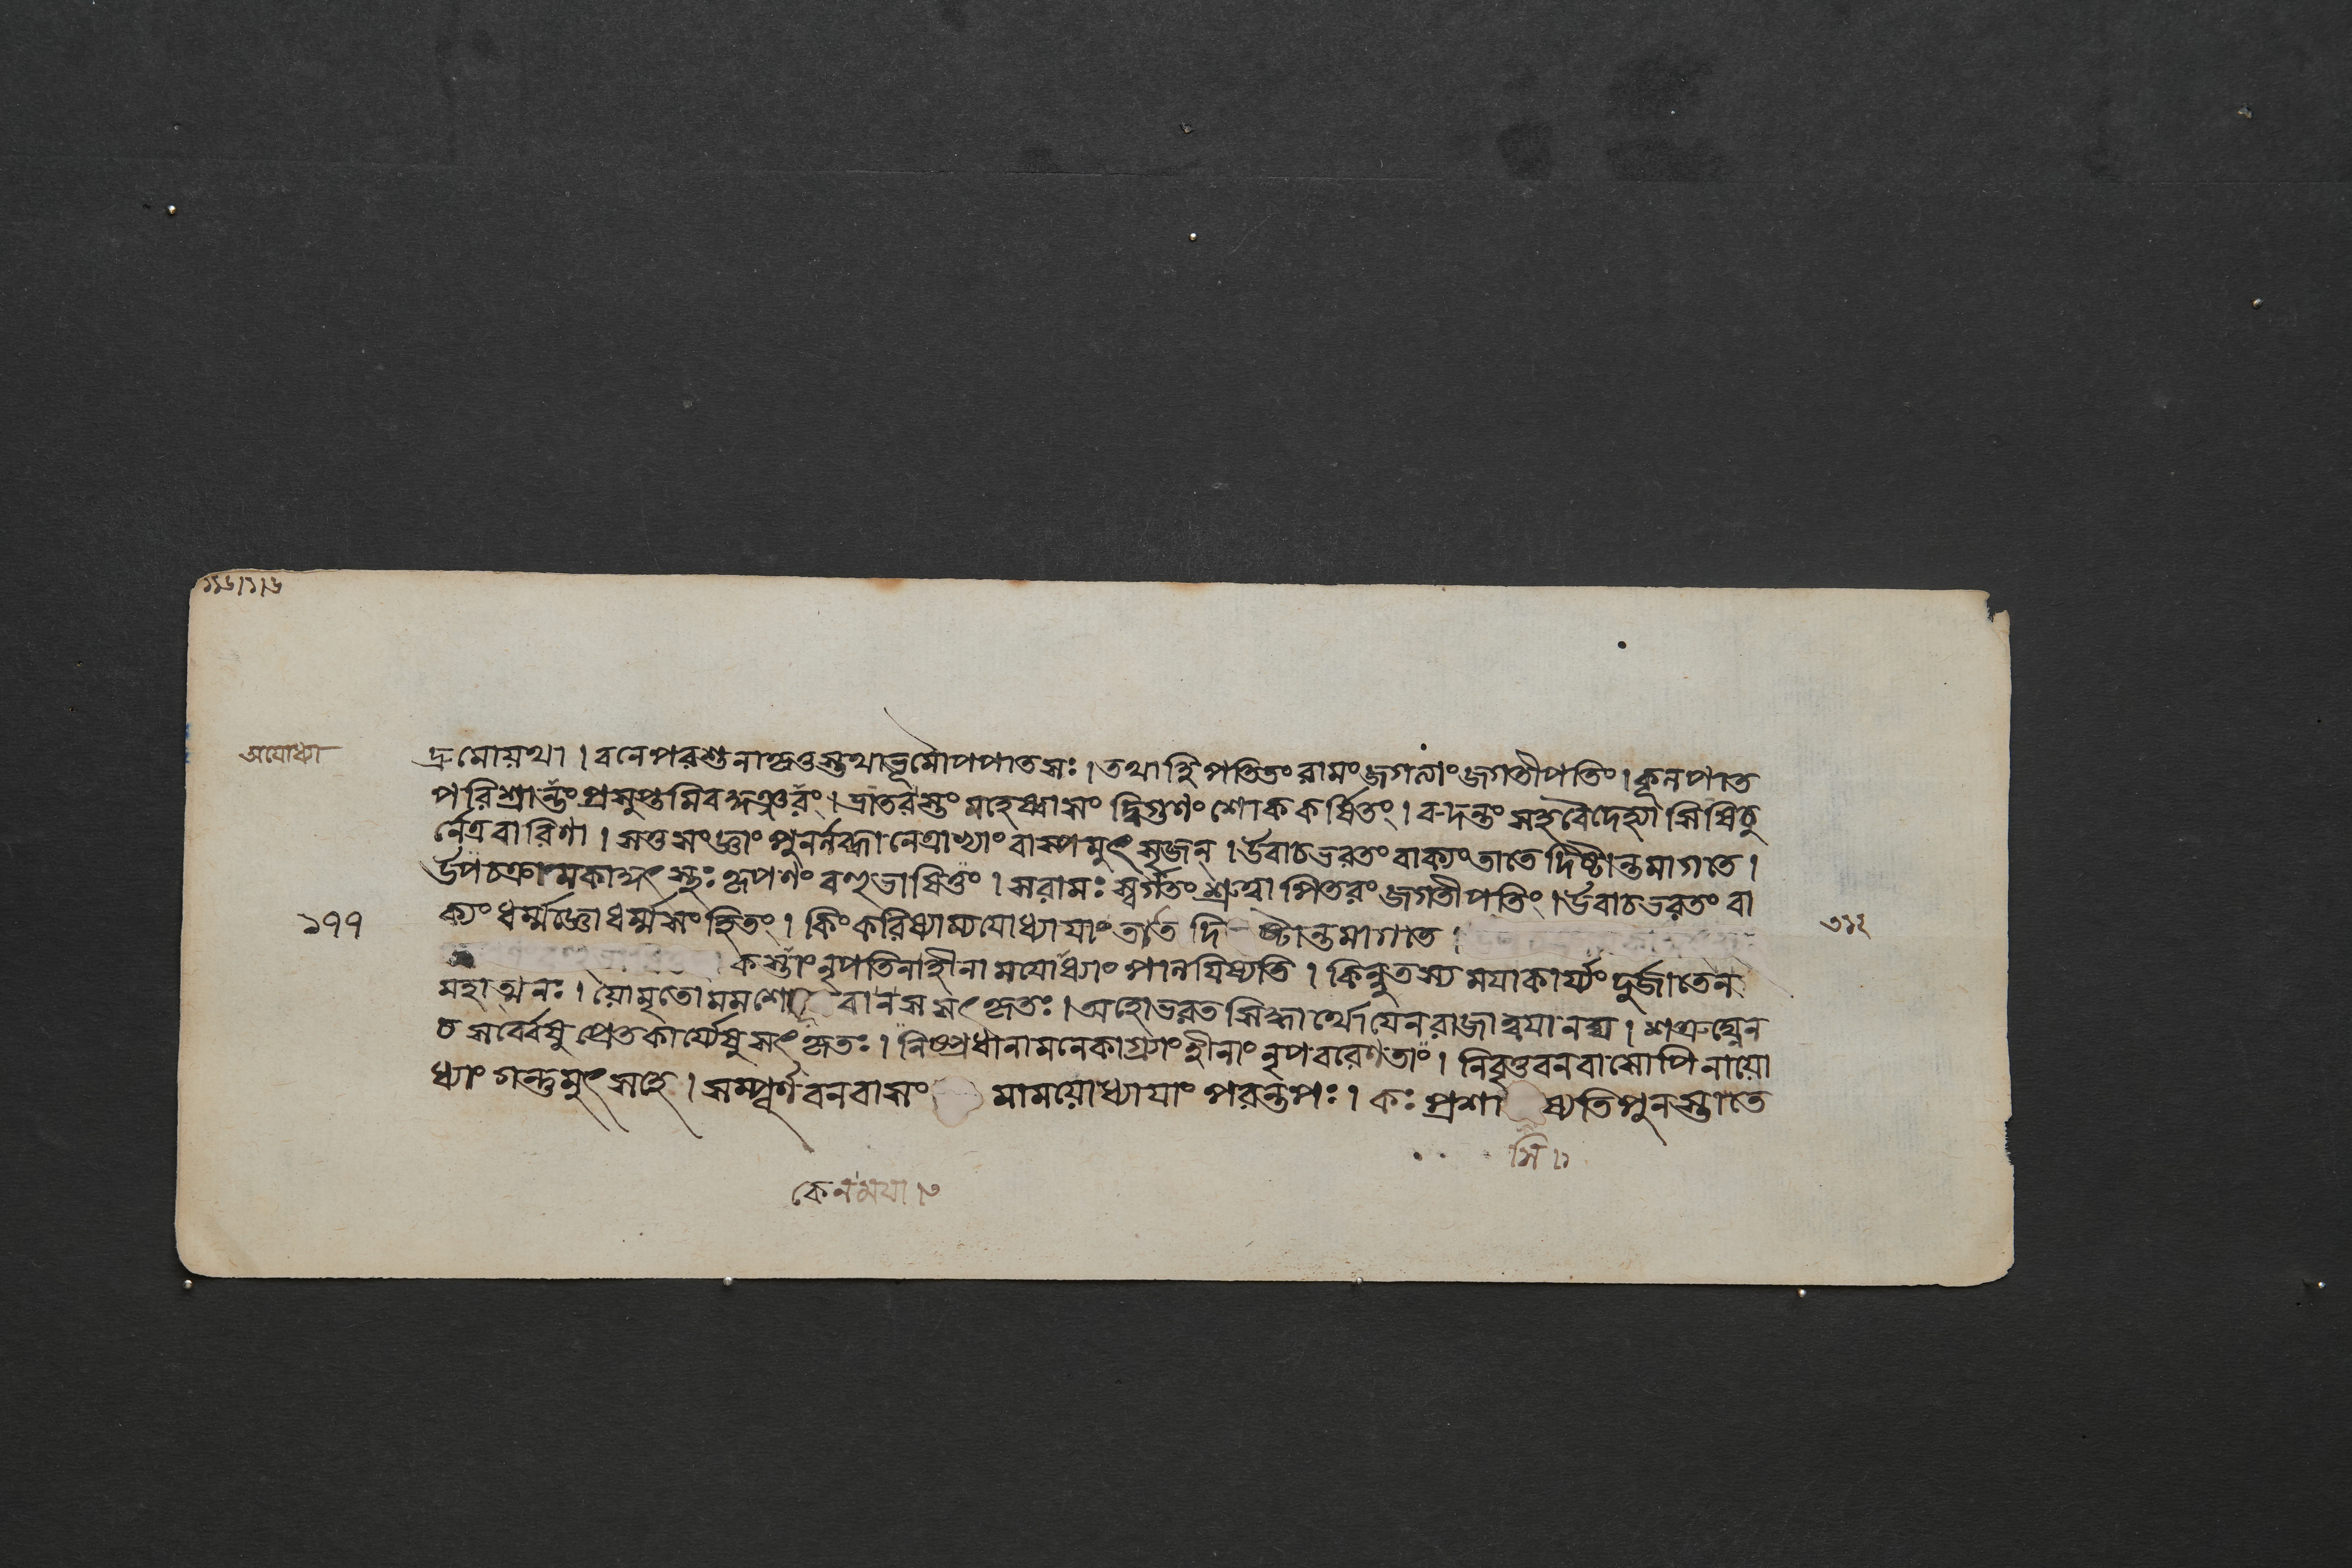 অযোধ্যা
দ্রুমোয়থা । বনে পরশুনা কৃত্তস্তথা ভূমৌ পপাত সঃ । তথা হি পতিতং রামং জগত্যাং জগতীপতিং । কূলপাত
পরিশ্রান্তং প্রসুপ্তমিব কুঞ্জরং । ভ্রাতরস্তং মহেষ্বাসং দ্বিগুণং শোককর্ষিতং । রুদন্তং সহ বৈদেহ্যা সিষিচু
র্নেত্রবারিণা । স তু সংজ্ঞাং পুনর্লব্ধা নেত্রাভ্যাং বাস্পমুৎসৃজন্ । উবাচ ভরতং বাক্যং তাতে দিষ্টান্তমাগতে ।
উপচক্রাম কাকুৎস্থঃ কৃপণং বহুভাষিতুং । স রামঃ স্বর্গতং শ্রুত্বা পিতরং জগতীপতিং । উবাচ ভরতং বা
ক্যং ধর্ম্মজ্ঞো ধর্ম্মসংহিতং । কিং করিষ্যাম্যযোধ্যাযাং তাতে দিষ্টান্তমাগতে ।
১৭৭
কস্তাং নৃপতিনা হীনামযোধ্যাং পালযিষ্যতি । কিন্নু তস্য মযা কার্য্যং দুর্জাতেন
মহাত্মনঃ । য়ো মৃতো মম শো বা ন স সৎকৃতঃ । অহো ভরত সিদ্ধার্থো যেন রাজা ত্বযানঘ । শত্রুঘ্নেন
চ সর্ব্বেষু প্রেতকার্য্যেষু সৎকৃতঃ । নিষ্প্রধানামনেকাগ্র্যাং হীনাং নৃপবরেণ তাং । নিবৃত্তবনবাসোপি নায়ো
ধ্যাং গন্তুমুৎসহে । সম্পূর্ণবনবাসং মাময়োধ্যাযাং পরন্তপঃ । কঃ প্রশা ষ্যতি পুনস্তাতে
সি ১
কেন মযা ।৩